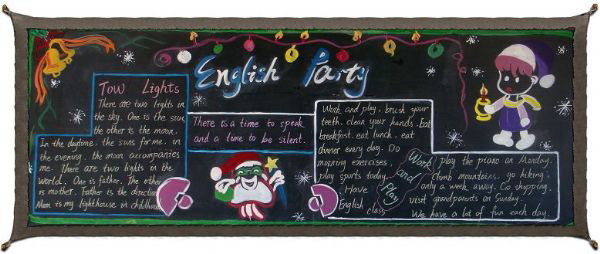 English Party
Tow Lights
There are two lights in
the sky. One is the sun
the other is the moon.
In the daytime, the suns for me. in
the evening. the moon accompanies
me. There are two lights in the
world. One is father. The other
is mother. Father is the direction
Mom is my lighthouse in childhood
There is a time to speak
and a time to be silent.
Work and play. brush your
teeth. clean your hands. Eat
breakfast. eat lunch. eat
dinner every day. Do
morning exercises.
play sports today.
Have
English class
Work
and
Play
play the piano on Monday.
Climb mountains, go hiking
only a week away. Go shopping,
visit grandparents on Sunday.
We have a lot of fun each day.